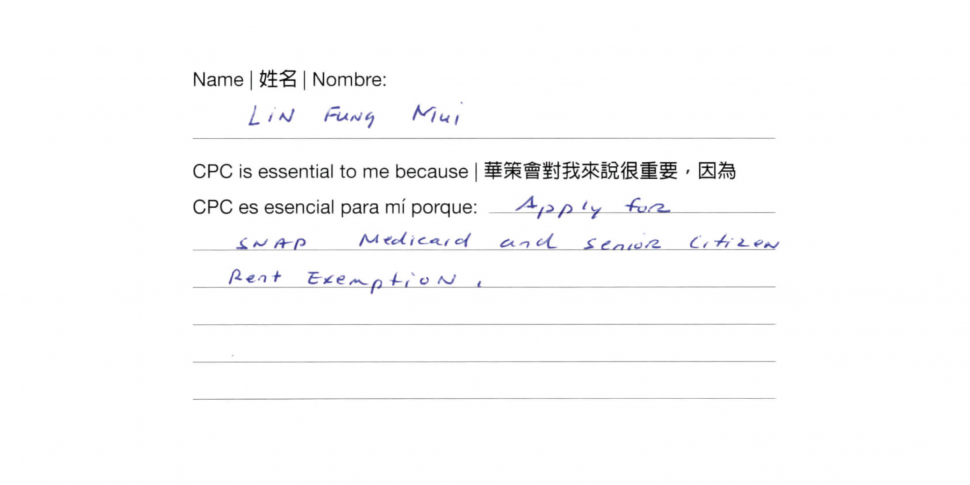 Name | 姓名 | Nombre:
LiN FUNG Mui
CPC is essential to me because | 華策會對我來說很重要，因為
CPC es esencial para mí porque: Apply for
SNAP Medicaid and senior Citizen
Rent Exemption.